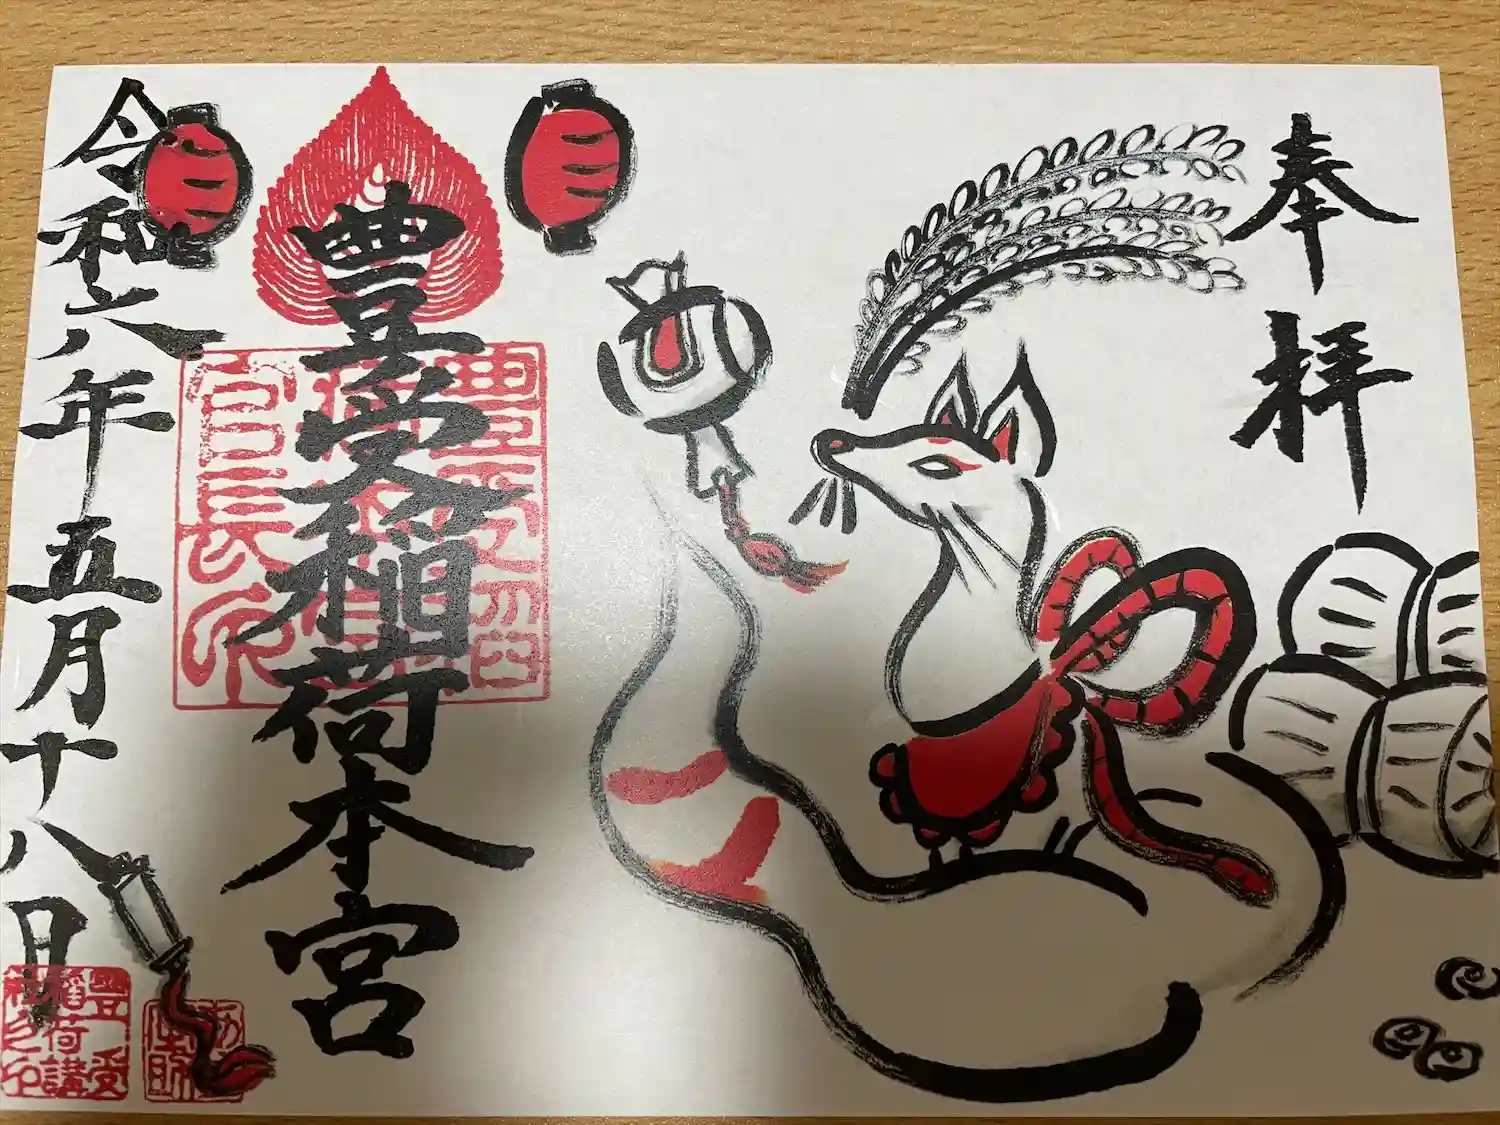 奉拝
豊受稲荷本宮
令和六年五月十八日
豊受
稲荷講